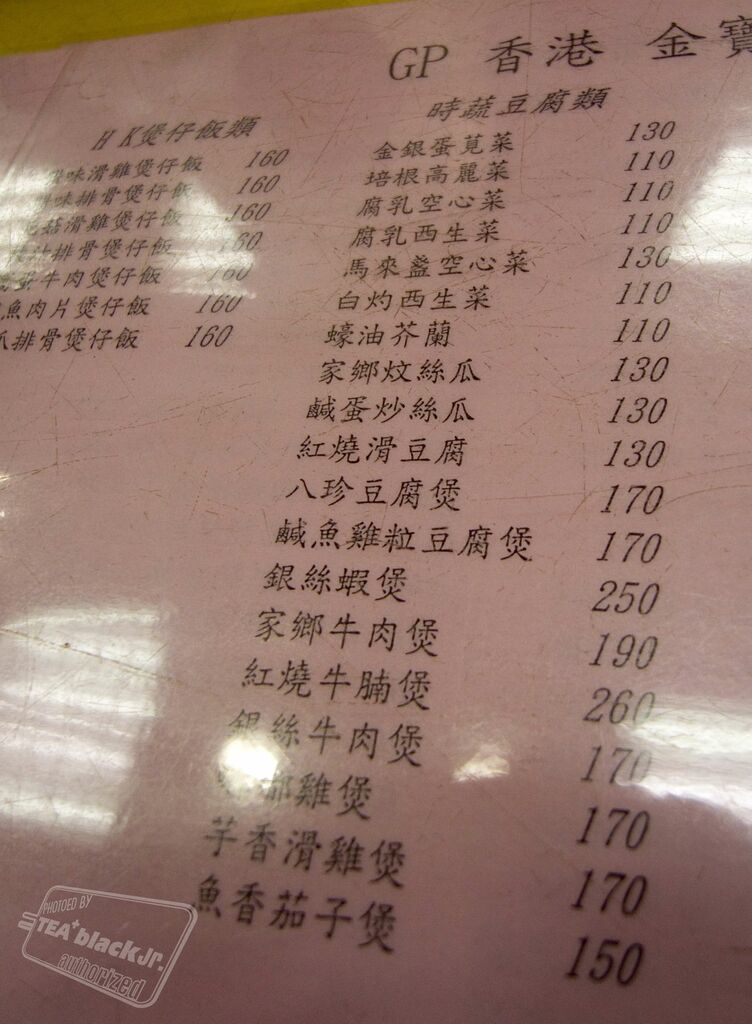 GP 香港 金寶
HK煲仔飯類
味滑雞煲仔飯 160
味排骨煲仔飯 160
菇滑雞煲仔飯 160
排骨煲仔飯 160
蛋牛肉煲仔飯 160
魚肉片煲仔飯 160
排骨煲仔飯 160
時蔬豆腐類
金銀蛋莧菜 130
培根高麗菜 110
腐乳空心菜 110
腐乳西生菜 110
馬來盞空心菜 130
白灼西生菜 110
蠔油芥蘭 110
家鄉炆絲瓜 130
鹹蛋炒絲瓜 130
紅燒滑豆腐 130
八珍豆腐煲 170
鹹魚雞粒豆腐煲 170
銀絲蝦煲 250
家鄉牛肉煲 190
紅燒牛腩煲 260
銀絲牛肉煲 170
雞煲 170
芋香滑雞煲 170
魚香茄子煲 150
PHOTOED BY
TEA+blackJr.
authorized